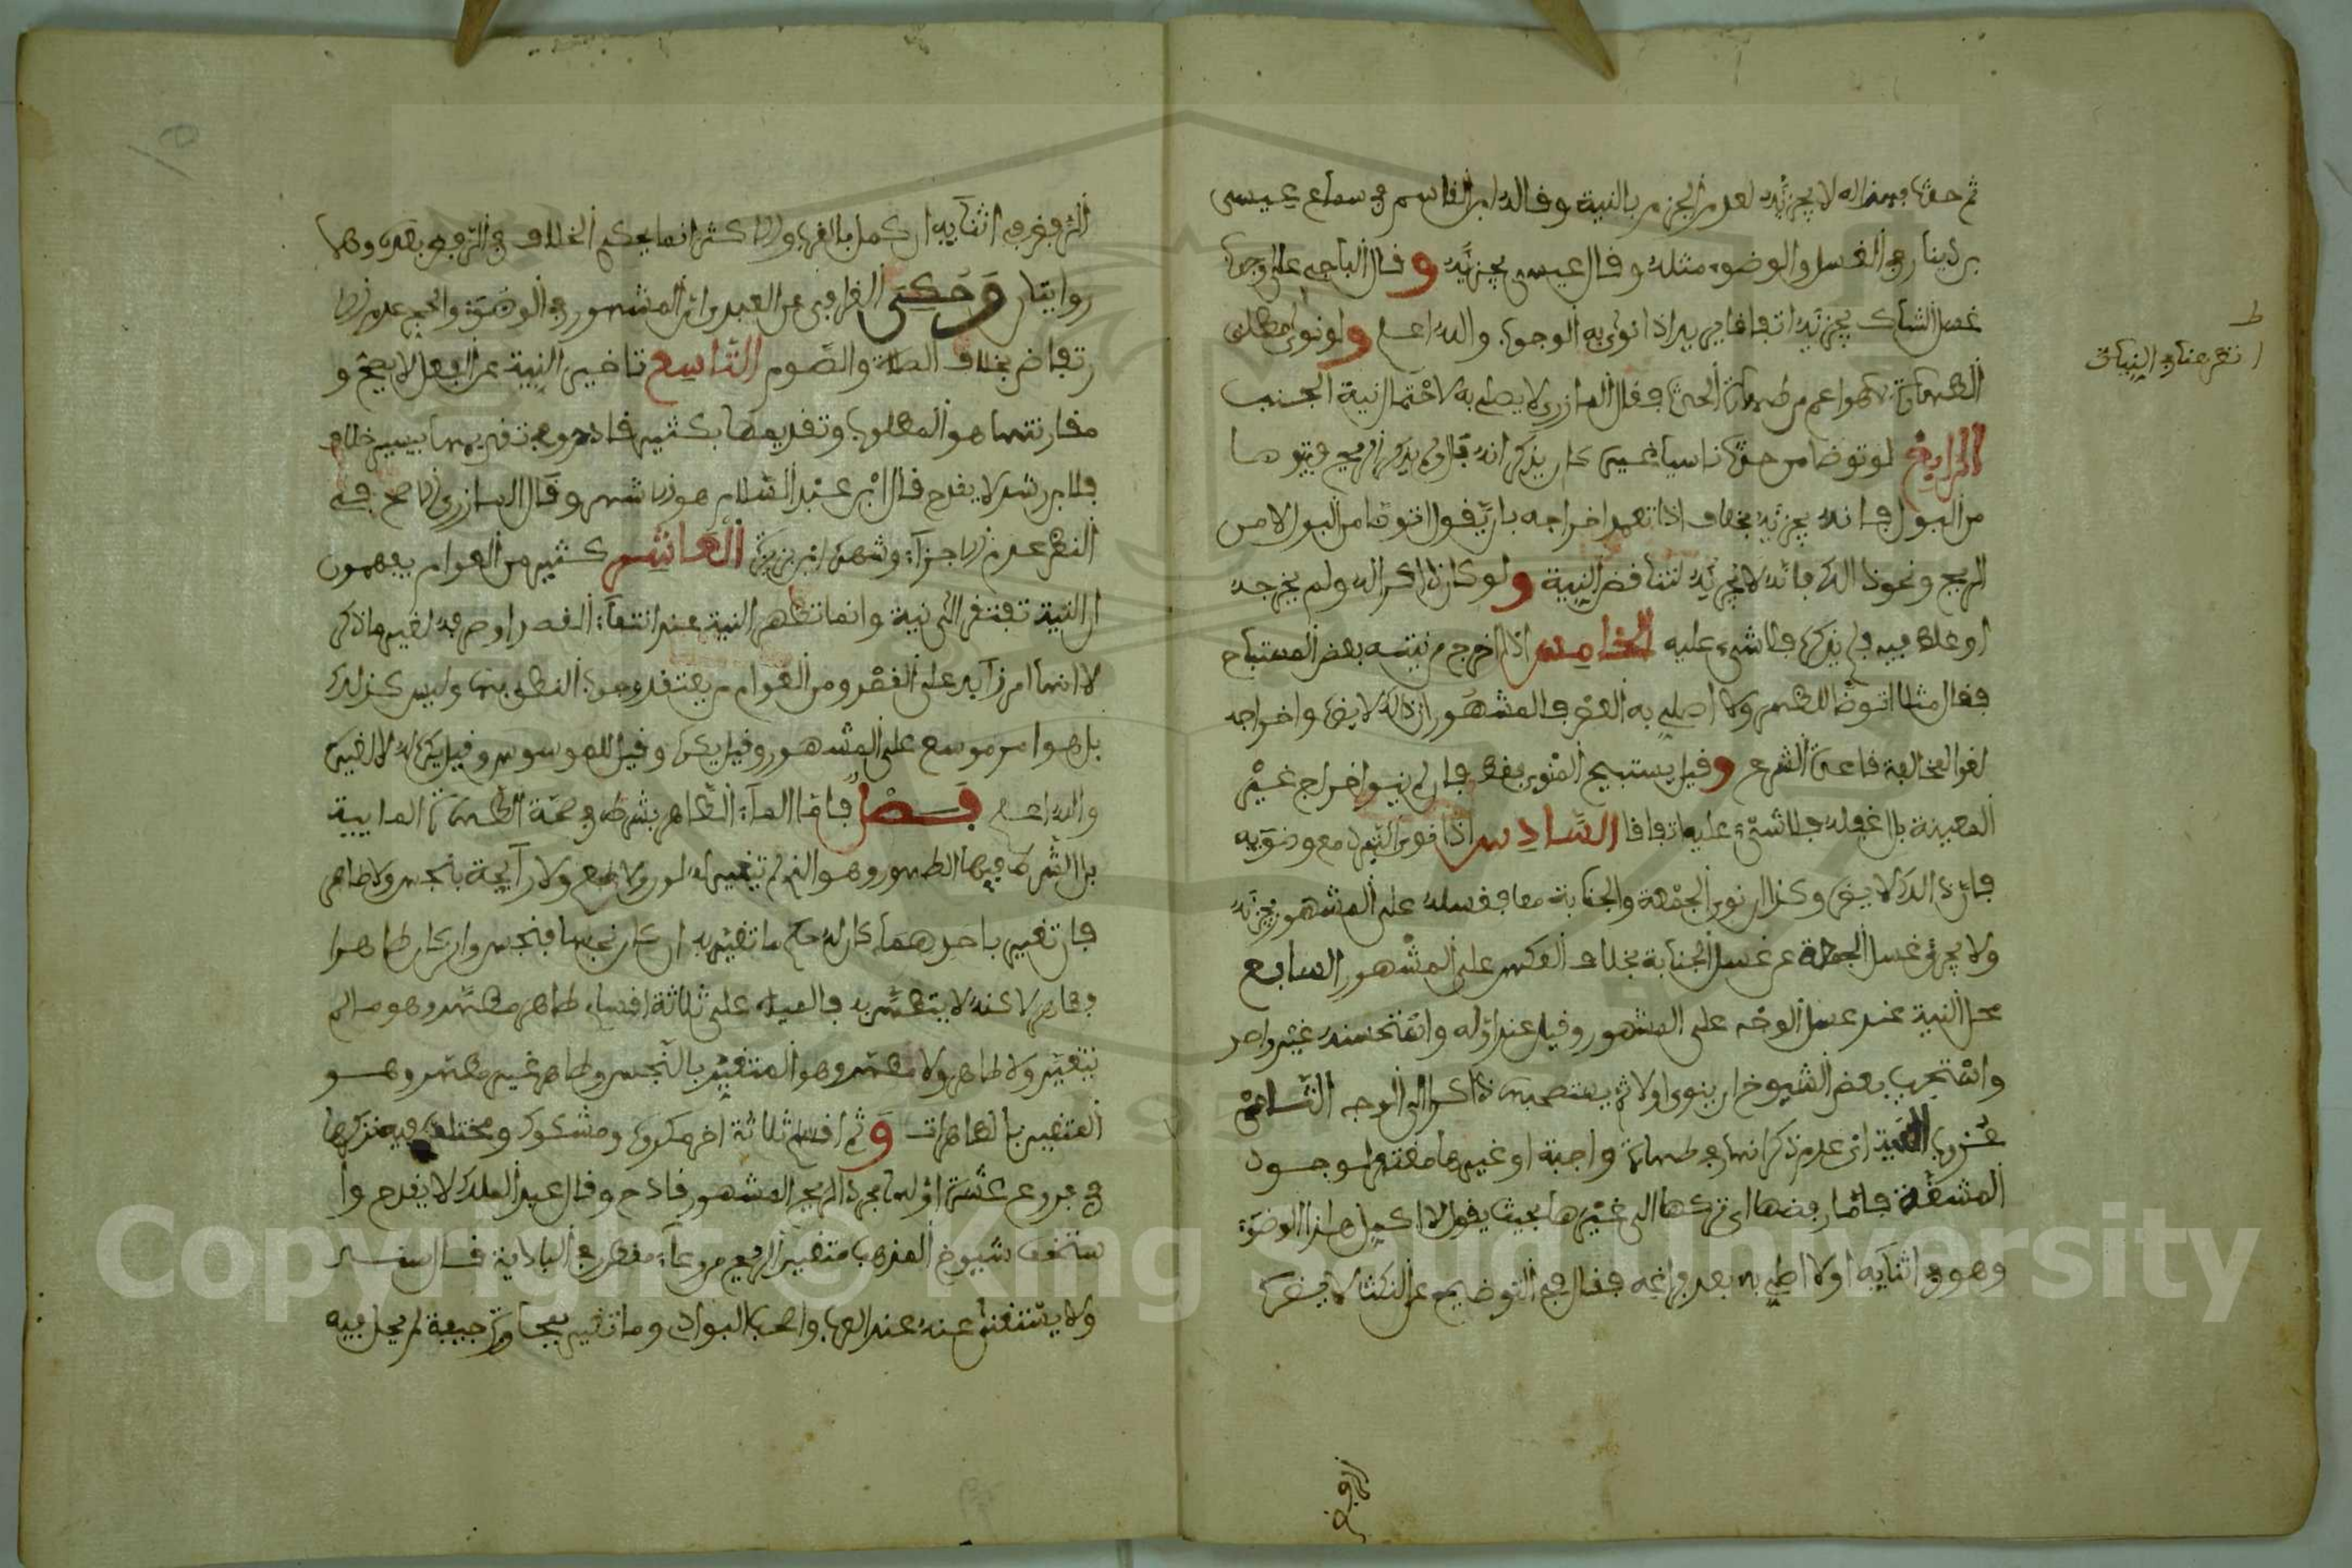 ثم حدثه فبان انه لا يجزئه لعدم الجزم بالنية وقاله ابن القاسم في سماع عيسى
بن دينار في الغسل والوضوء مثله وقال عيسى يجزئه وقال الباجي على وجوب
غسل الشاك يجزئه اتفاقا يريد اذا نوى به الوجوب والله اعلم ولو نوى مطلق
الطهارة كهو اعم من طهارة الحدث فقال المازري لا يصلي به لاحتمال نية الجنب
الرابع لو توضا من حدث ناسيا غيره كان يذكر انه بال ولم يذكر الريح فيتوضا
من البول فانه يجزئه بخلاف اذا تعمد اخراجه بان يقول اتوضا من البول لا من
الريح ونحو ذالك فانه لا يجزئه لتناقض النية ولو كان ذاكرا له ولم يخرجه
او غلط فيه فلم يذكره فلا شيء عليه الخامس اذا اخرج من نيته بعض المستباح
فقال مثلا اتوضا للظهر ولا اصلي به العصر فالمشهور ان ذالك لا يضر واخراجه
لغو المخالفة قاعدة الشرع وقيل يستبيح المنوي فقط فان لم ينو اخراج غير
المعينة بل اغفله فلا شيء عليه اتفاقا السادس اذا نوى التبرد مع وضوئه
فان ذالك لا يضر وكذا ان نوى الجمعة والجنابة معا فغسله على المشهور يجزئه
ولا يجزئ غسل الجمعة عن غسل الجنابة بخلاف العكس على المشهور السابع
محل النية عند غسل الوجه على المشهور وقيل عند اوله واستحسنه غير واحد
واستحب بعض الشيوخ ان ينوي اولا ثم يستصحبه ذاكرا الى الوجه الثامن
عزوب النية اي عدم ذكرانها في طهارة واجبة او غيرها مغتفر لوجود
المشقة فاما رفضها اي تركها الى غيرها بحيث يقول لا اكمل هذا الوضوء
وهو في اثنائه او لا اصلي به بعد فراغه فقال في التوضيح عن النكت لا يضر
الرفض
انظر عنا في النيات
الرفض في اثنائه ان كمل بالقرب والاكثر انما يحكي الخلاف في الرفض بعده وهما
روايتان وحكى القرافي عن العبدي ان المشهور في الوضوء والحج عدم الا
رتفاض بخلاف الصلاة والصوم التاسع تاخير النية عن الفعل لا يصح و
مقارنتها هو المطلوب وتقديمها بكثير قادح وفي تقديمها بيسير خلاف
فلابن رشد لا يقدح قال ابن عبد السلام هو الاشهر وقال المازري الاصح في
النظر عدم الاجزاء وشهره ابن بزيزة العاشر كثير من العوام يفهمون
ان النية تفتقر الى نية وانما تظهر النية عند انتفاء القصد او صرفه لغير ما ذكر
لا انها امر زايد على القصد ومن العوام من يعتقد وجوب النطق بها وليس كذلك
بل هو امر موسع على المشهور وقيل يكره وقيل للموسوس وقيل يكره له لا لغيره
والله اعلم فصل فاما الماء الطاهر بشرطه في صحة الطهارة المايية
بل الشرط فيها الطهور وهو الذي لم تتغير له لون ولا طعم ولا رائحة بنجس ولا طاهر
فان تغير باحدهما كان له حكم ما تغير به ان كان نجسا فنجس وان كان طاهرا
فطاهر لا كنه لا يتطهر به فالمياه على ثلاثة اقسام طاهر مطهر وهو ما لم
يتغير ولا طاهر ولا مطهر وهو المتغير بالنجس وطاهر غير مطهر وهو
المتغير بالطاهرات وثم اقسام ثلاثة اخر مكروه ومشكوك ومختلف فيه نذكرها
في فروع عشرة اولها مجرد الريح المشهور قادح وقال عبد الملك لا يقدح وا
ستخف شيوخ المذهب متغير الريح من وعاء مقطر في البادية قال سند
ولا يستغنى عنه عند العرب واهل البوادي وما تغير بمجاورة جيفة لم يحل فيه